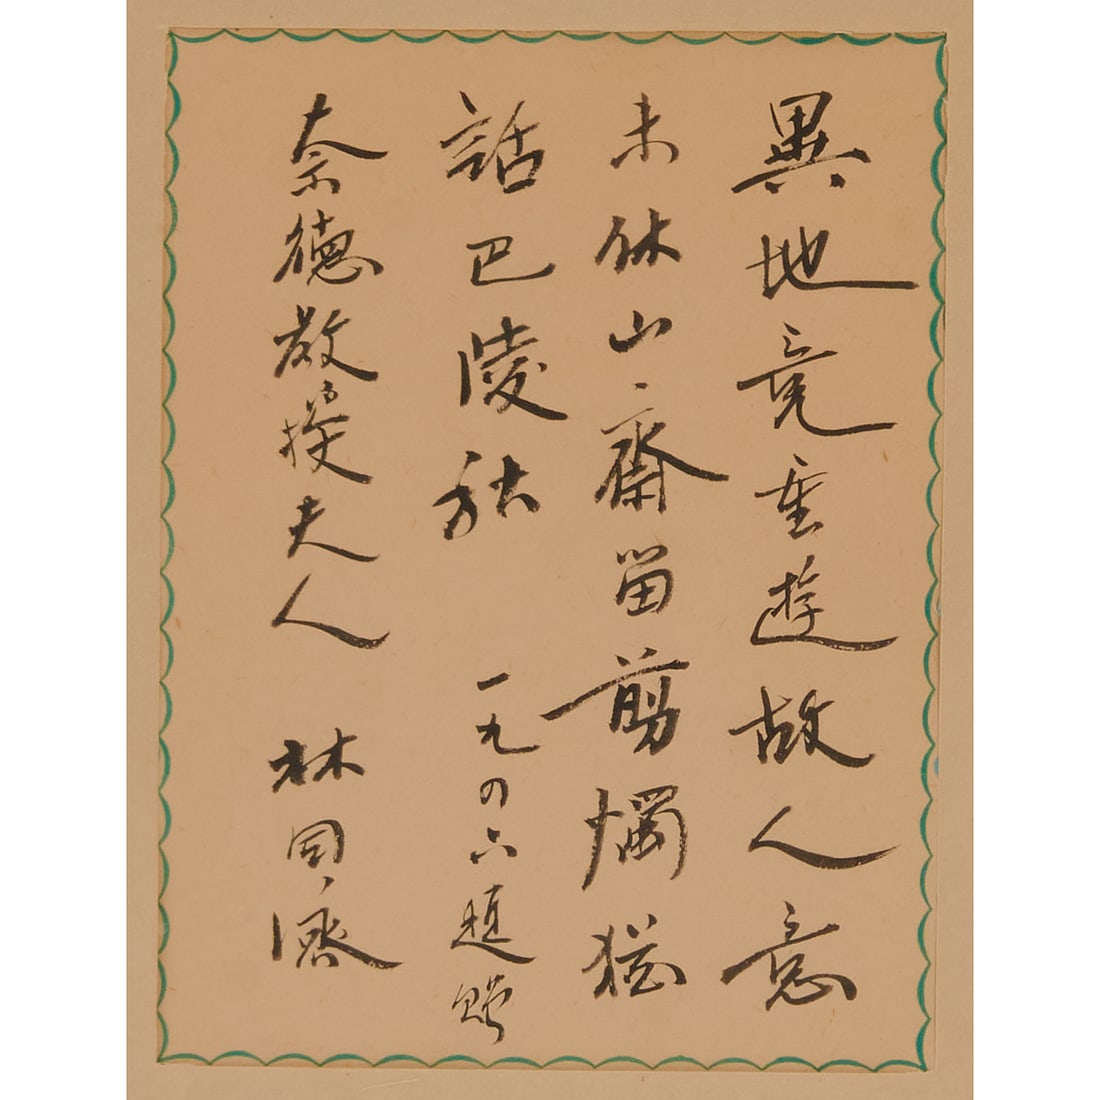 異地竟重遊故人意
未休山齋留剪燭猶
話巴陵秋 一九四六題贈
奈德教授夫人 林同濟